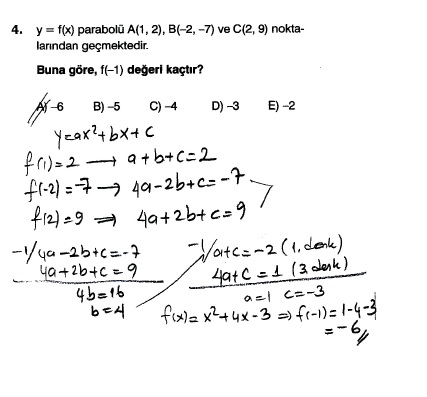 4. y = f(x) parabolü A(1, 2), B(–2, –7) ve C(2, 9) nokta-
larından geçmektedir.
Buna göre, f(–1) değeri kaçtır?
A) –6 B) –5 C) –4 D) –3 E) –2
y=ax²+bx+c
f(1)=2 → a+b+c=2
f(-2)=-7 → 4a-2b+c=-7
f(2)=9 ⇒ 4a+2b+c=9
-1/4a-2b+c=-7
4a+2b+c=9
4b=16
b=4
-1/a+c=-2 (1. denk)
4a+c=1 (3 denk)
a=1 c=-3
f(x)=x²+4x-3 ⇒ f(-1)=1-4-3
=-6//